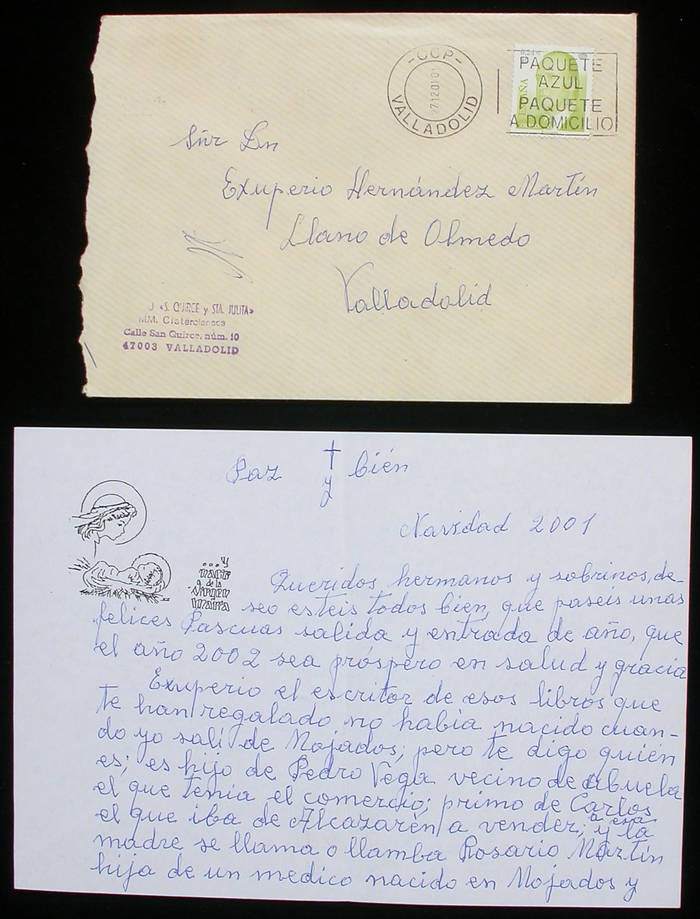 -CCP-
VALLADOLID
ESPAÑA
PAQUETE
AZUL
PAQUETE
A DOMICILIO
Exuperio Hernández Martín
Llano de Olmedo
Valladolid
«S. QUIRCE y STA. JULITA»
MM. Cistercienses
Calle San Quirce, núm. 10
47003 VALLADOLID
Paz y bién
Navidad 2001
...y
nace
de la
virgen
maria
Queridos hermanos y sobrinos, de-
seo esteis todos bien, que paseis unas
felices Pascuas salida y entrada de año, que
el año 2002 sea próspero en salud y gracia
Exuperio el escritor de esos libros que
te han regalado no habia nacido cuan-
do yo salí de Mojados; pero te digo quién
es; es hijo de Pedro Vega vecino de abuela
el que tenia el comercio; primo de Carlos
el que iba de Alcazarén a vender; a esa y la
madre se llama o llamba Rosario Martín
hija de un medico nacido en Mojados y